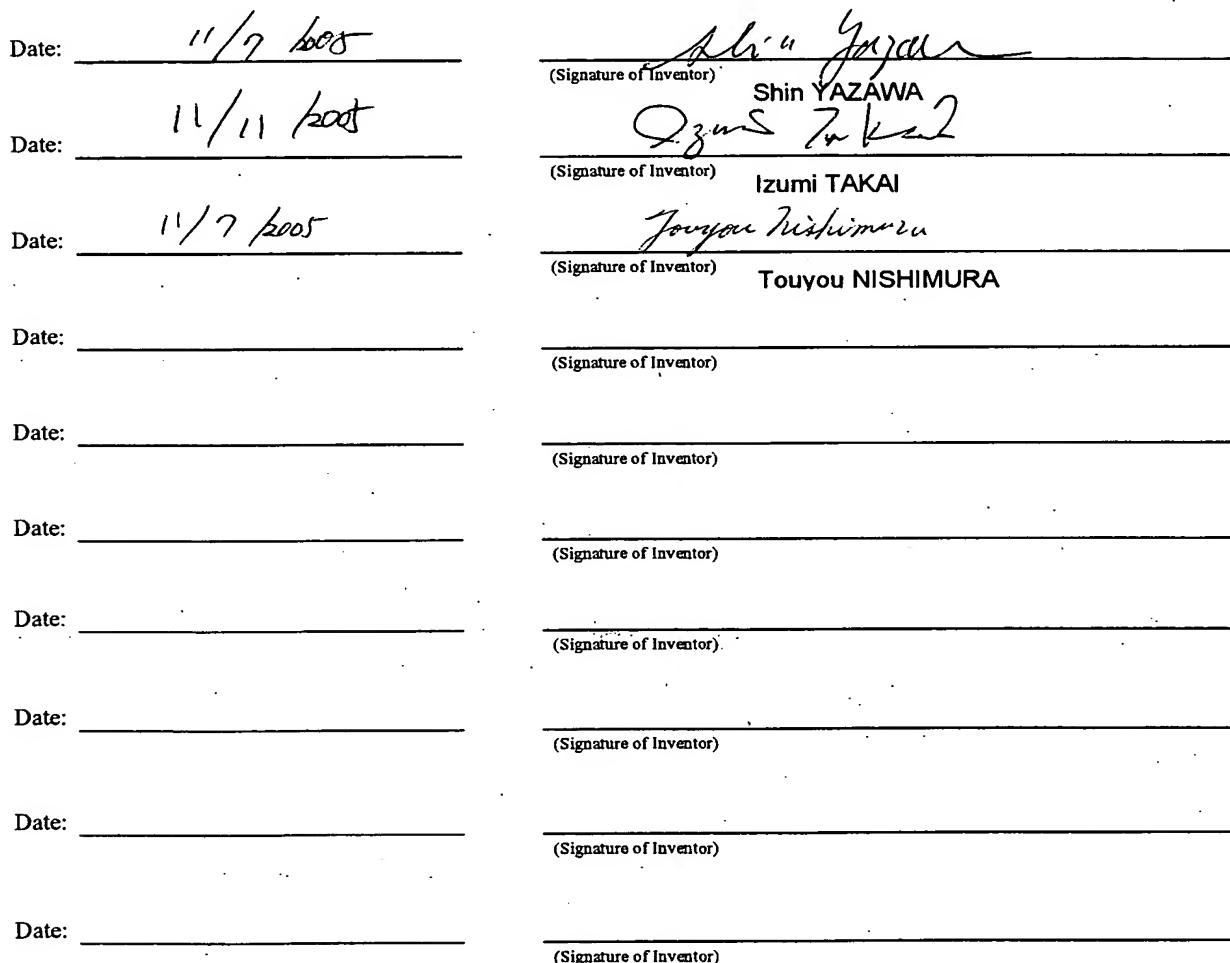 Date: 11/7/2005 Shin Yazawa
(Signature of Inventor)
Shin YAZAWA
Date: 11/11/2005 Izumi Takai
(Signature of Inventor)
Izumi TAKAI
Date: 11/7/2005 Touyou Nishimura
(Signature of Inventor)
Touyou NISHIMURA
Date:
(Signature of Inventor)
Date:
(Signature of Inventor)
Date:
(Signature of Inventor)
Date:
(Signature of Inventor)
Date:
(Signature of Inventor)
Date:
(Signature of Inventor)
Date:
(Signature of Inventor)